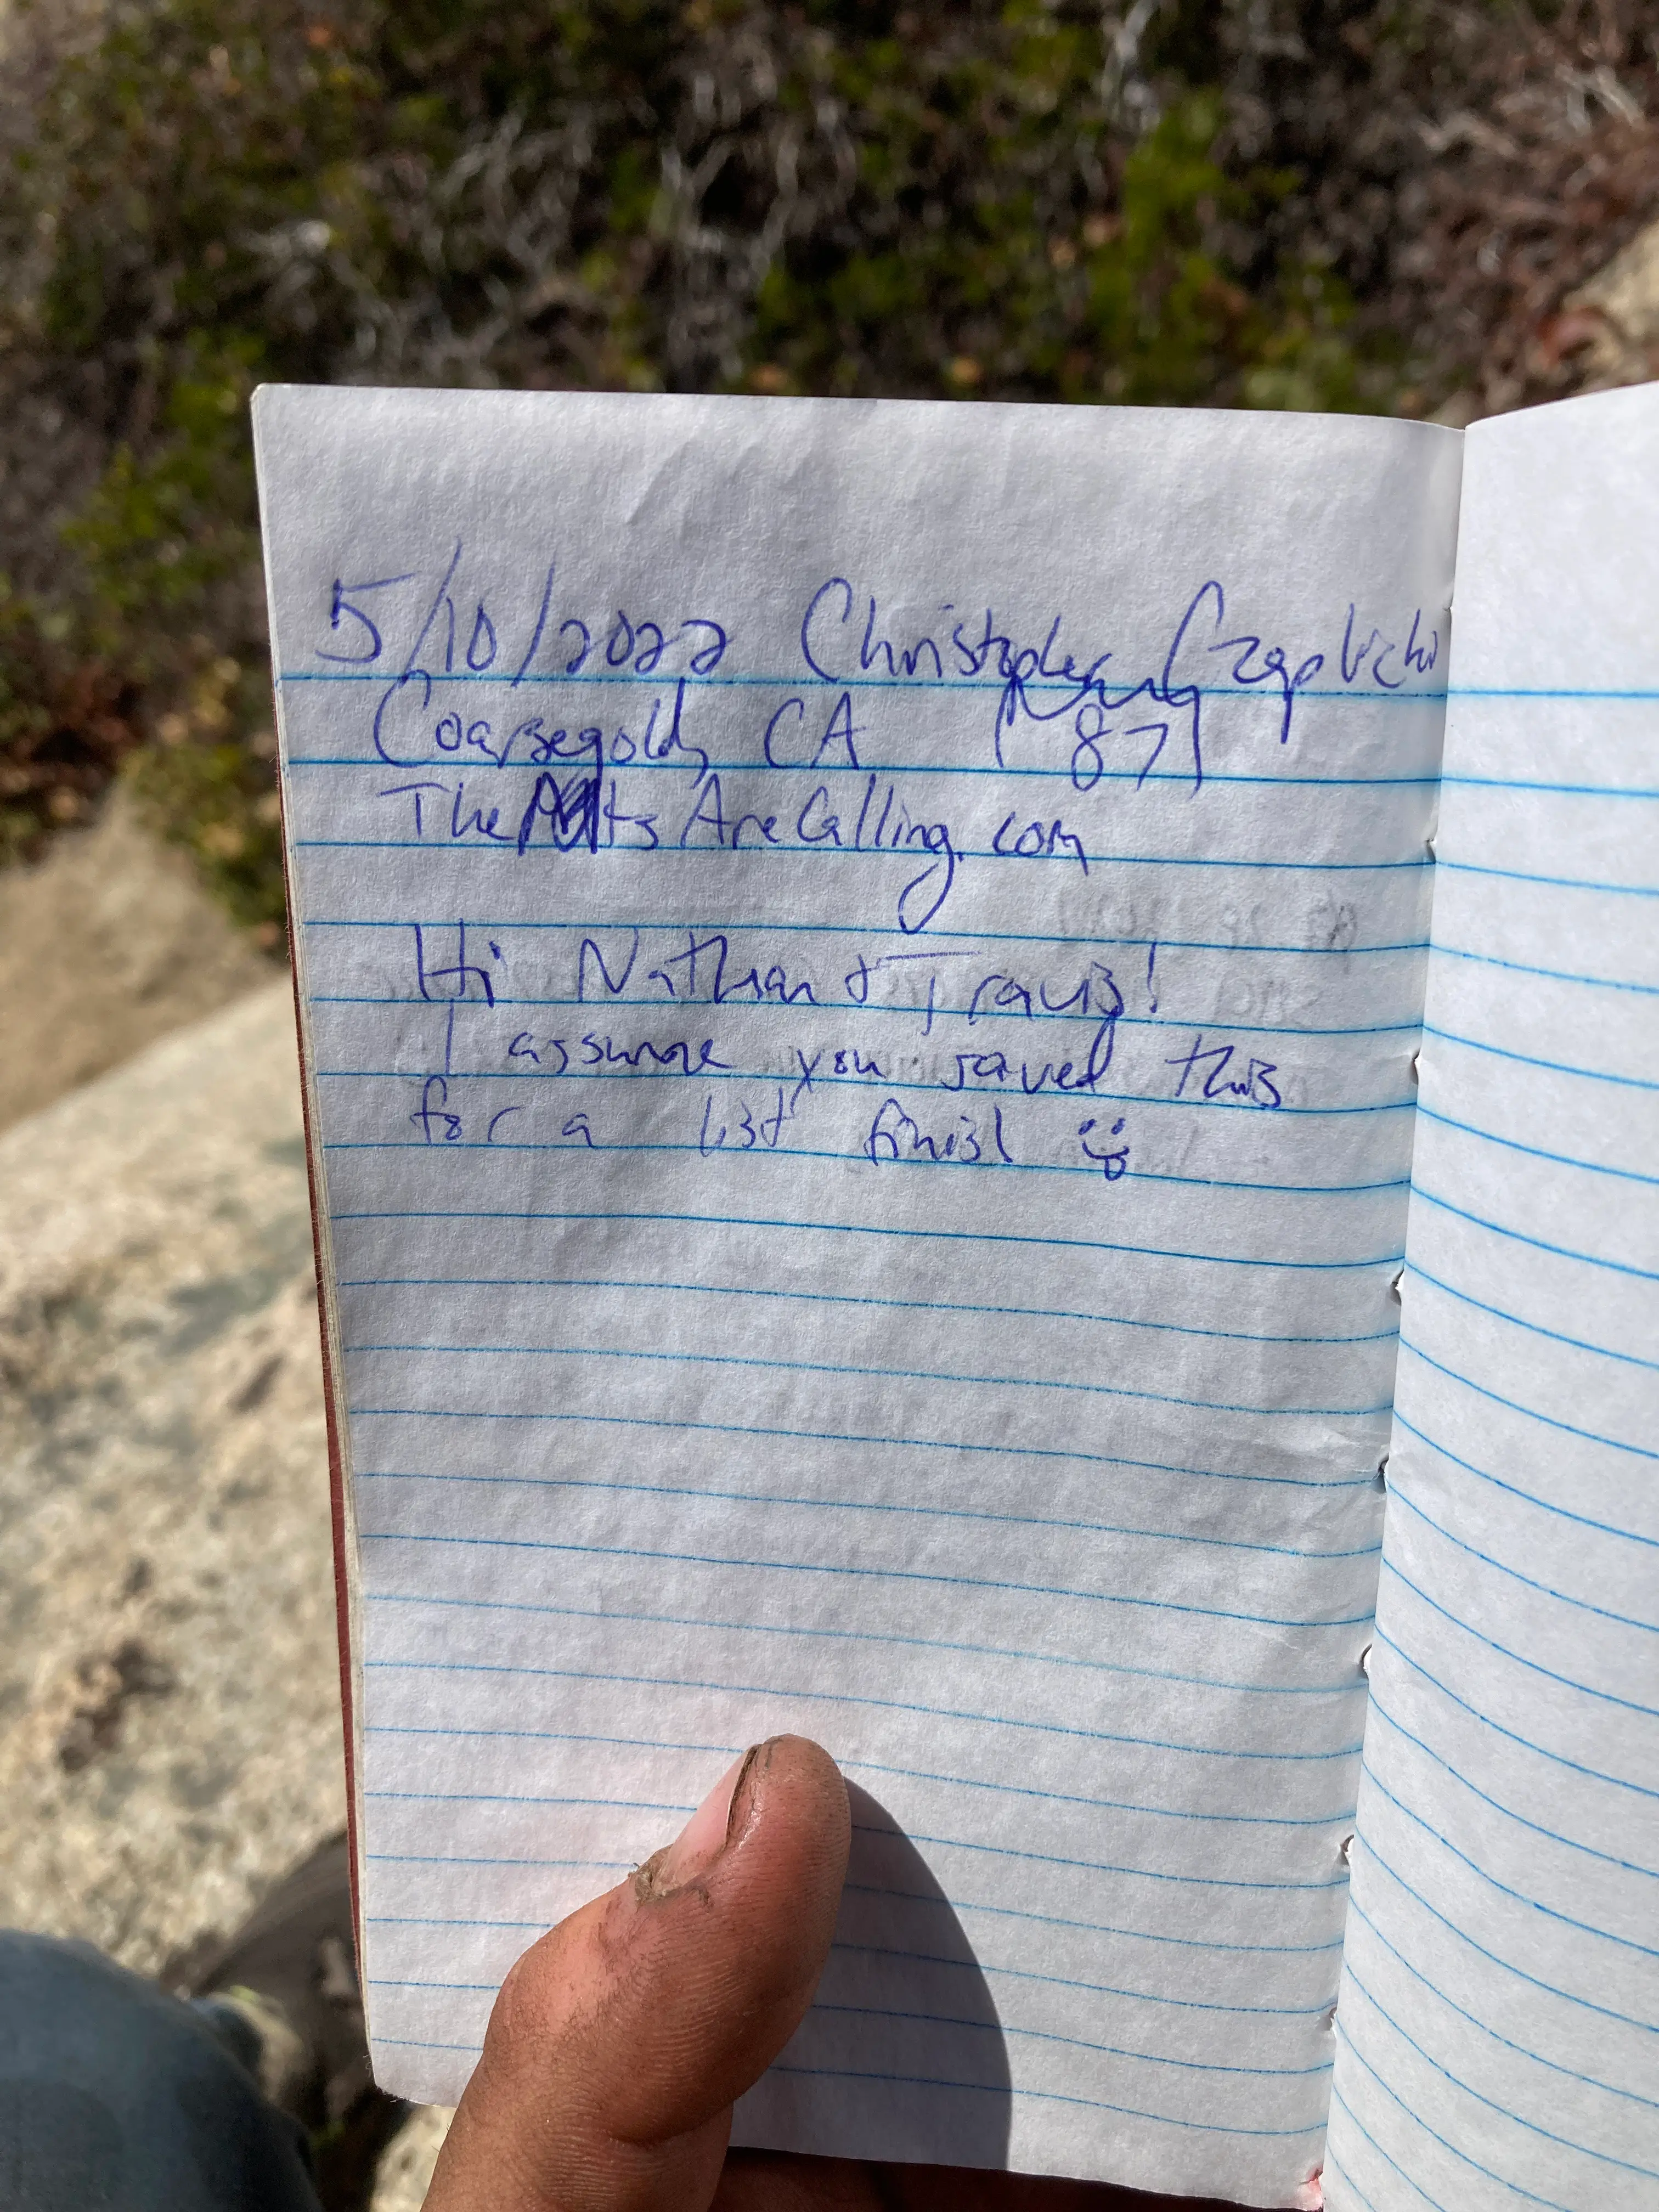 5/10/2022 Christopher Czaplicki
Coarsegold, CA [87]
The Mts Are Calling.com
Hi Nathan & Travis!
I assume you saved this
for a list finish